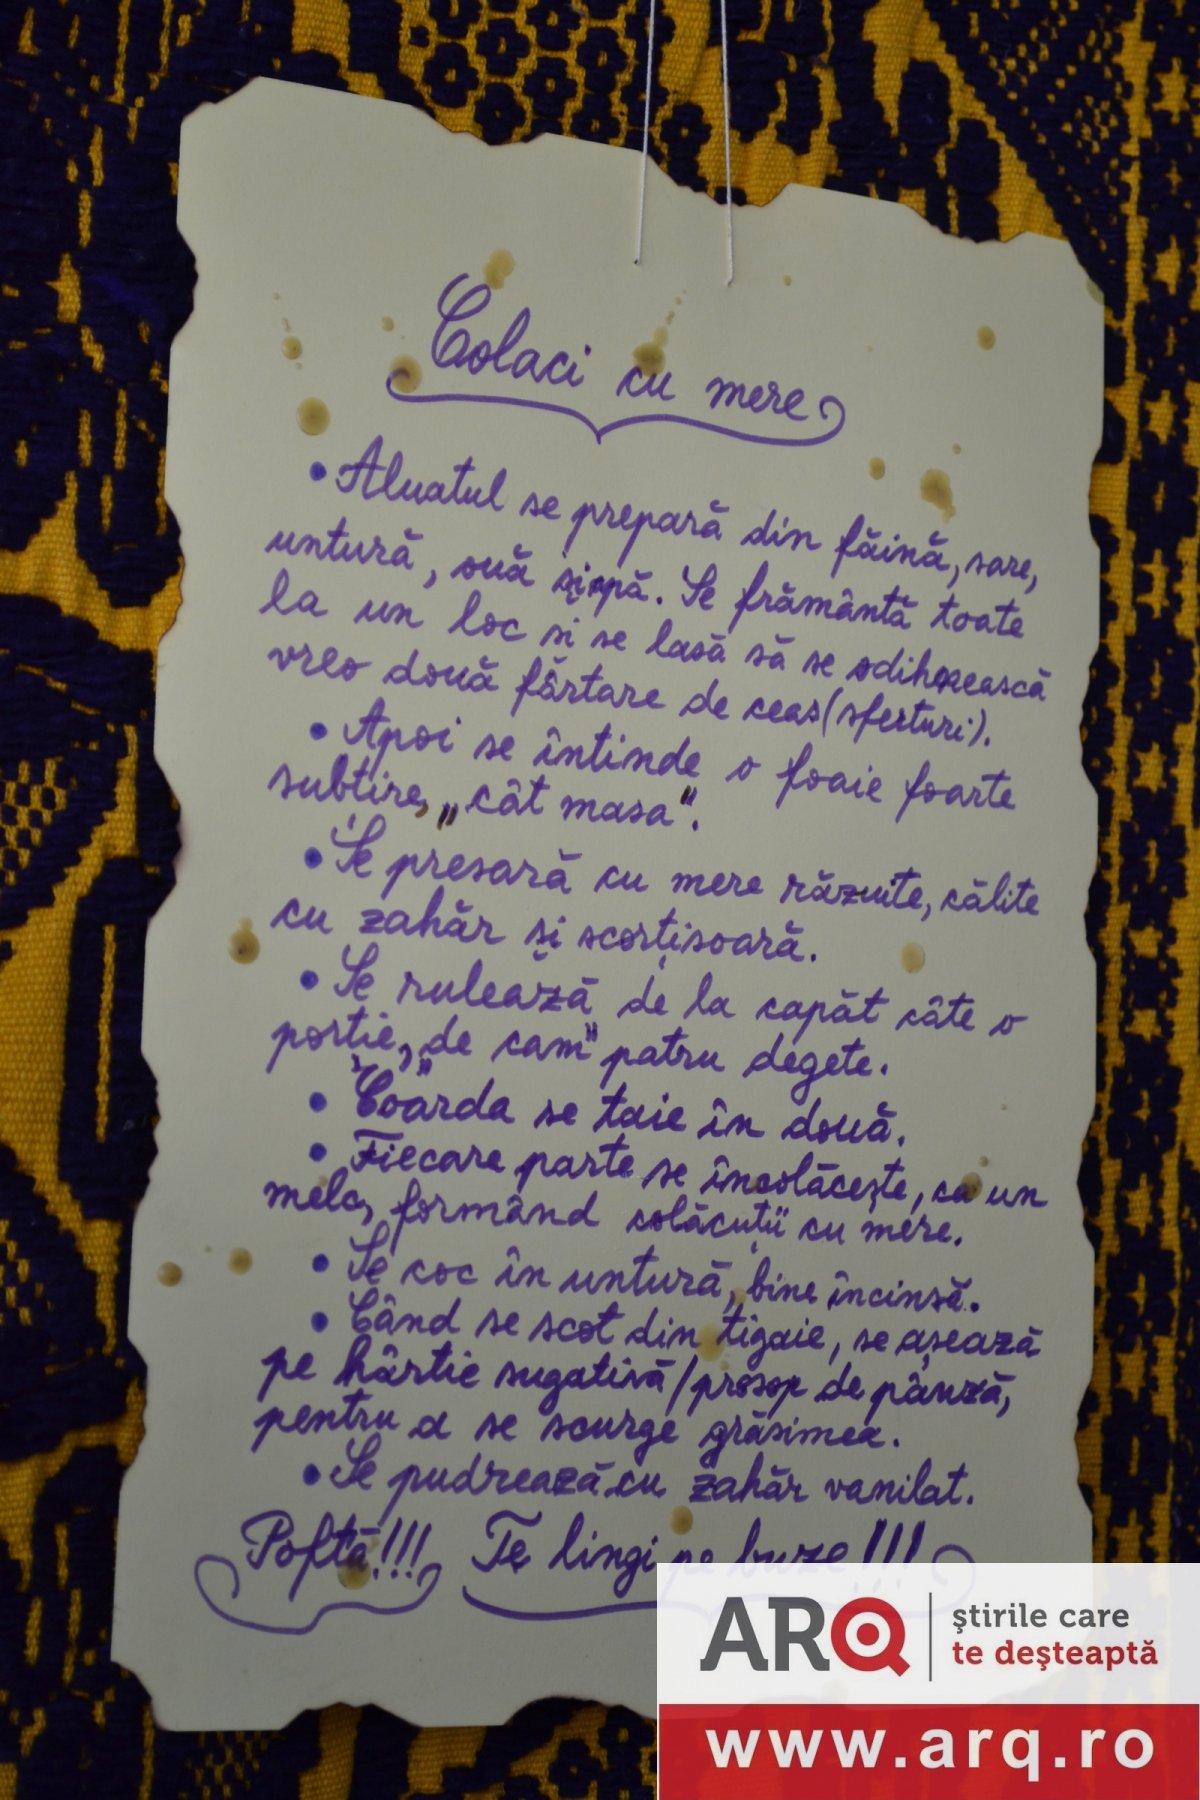 Colaci cu mere
• Aluatul se prepară din făină, sare,
untură, ouă și apă. Se frământă toate
la un loc și se lasă să se odihnească
vreo două fârtare de ceas (sferturi).
• Apoi se întinde o foaie foarte
subțire, „cât masa".
• Se presară cu mere răzuite, călite
cu zahăr și scorțișoară.
• Se rulează de la capăt câte o
porție, „de cam" patru degete.
• Coarda se taie în două.
• Fiecare parte se încolăcește, ca un
melc, formând colăcuții cu mere.
• Se coc în untură, bine încinsă.
• Când se scot din tigaie, se așează
pe hârtie sugativă/prosop de pânză,
pentru a se scurge grăsimea.
• Se pudrează cu zahăr vanilat.
Poftă!!! Te lingi pe buze!!!
ARQ
ştirile care
te deşteaptă
www.arq.ro